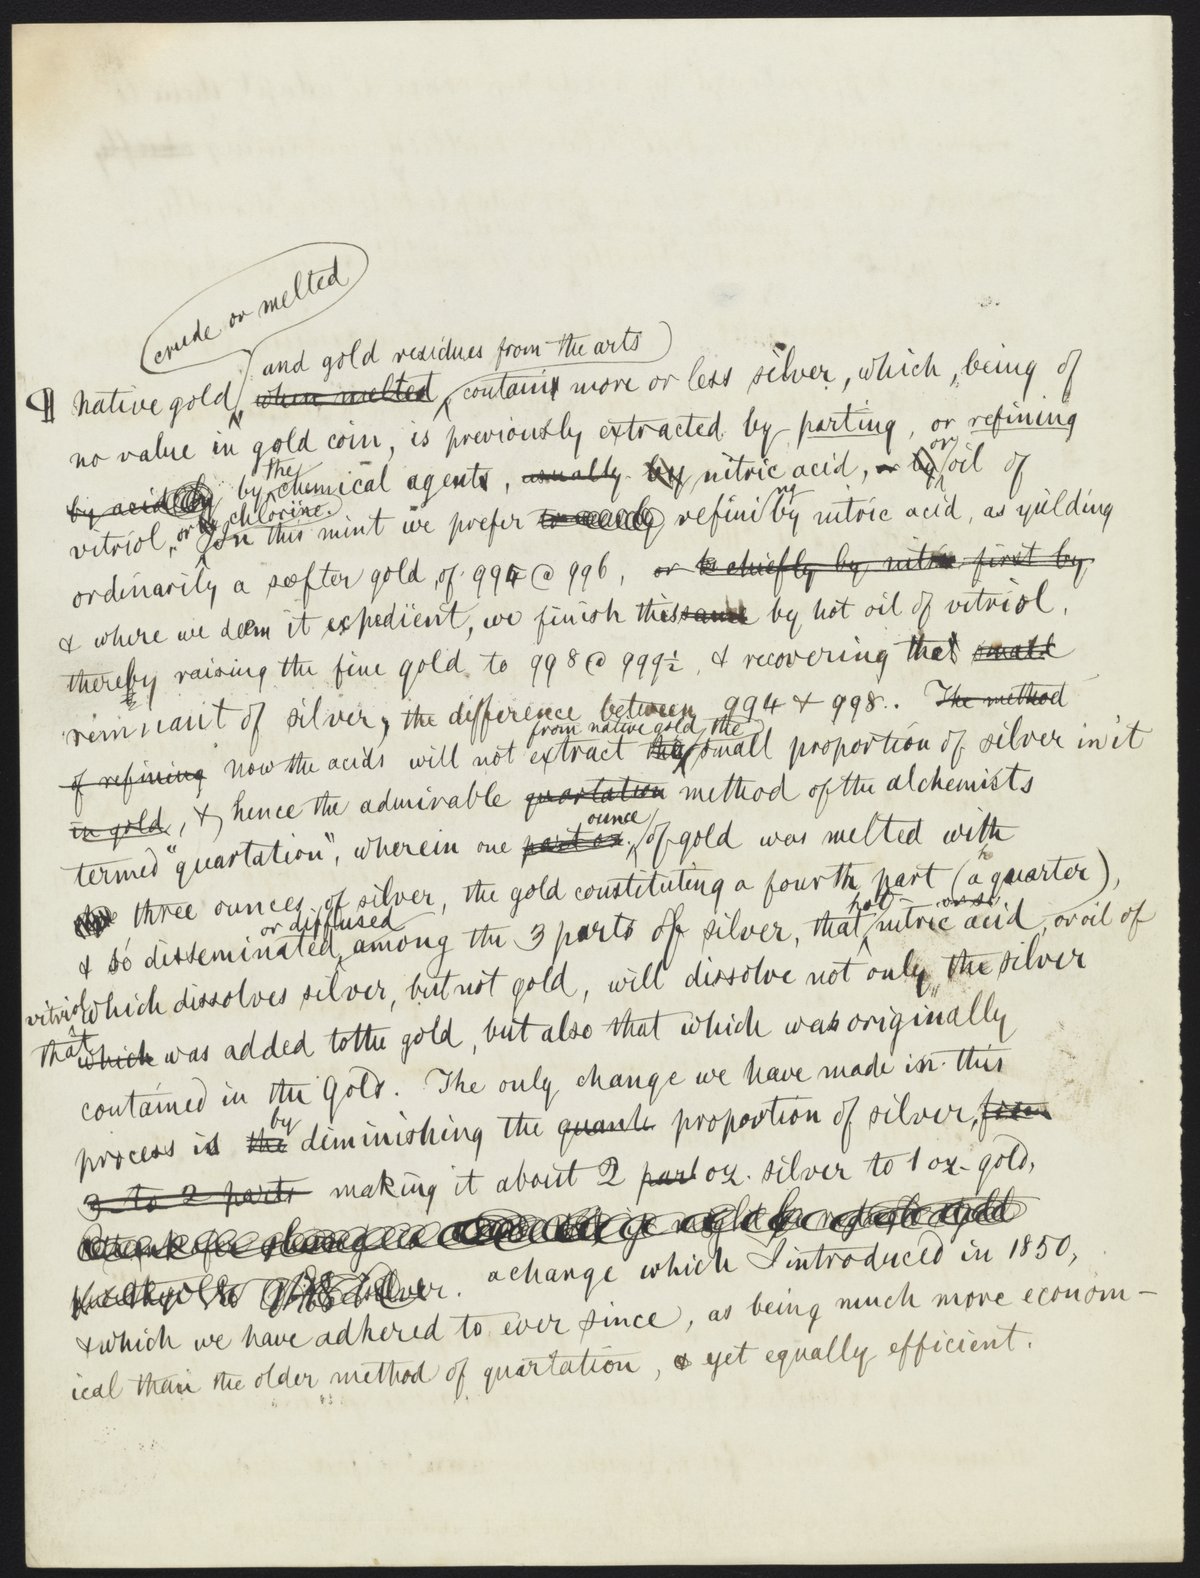 crude or melted
and gold residues from the arts
¶ Native gold when melted, contains more or less silver, which, being of
no value in gold coin, is previously extracted by parting, or refining
by acid by by the chemical agents, usually by nitric acid, or by or oil of
vitriol, or by chlorine. In this mint we prefer refining by nitric acid, as yielding
ordinarily a softer gold, of 994 @ 996, or chiefly by nitric first by
& where we deem it expedient, we finish this same by hot oil of vitriol,
thereby raising the fine gold to 998 @ 999½, & recovering that small
remnant of silver, the difference between 994 & 998. The method
from native gold, the
of refining now the acids will not extract the small proportion of silver in it
in gold, & hence the admirable quartation method of the alchemists
ounce
termed "quartation", wherein one part oz. of gold was melted with
three ounces of silver, the gold constituting a fourth part (a quarter),
or diffused hot or so
& so disseminated among the 3 parts of silver, that nitric acid, or oil of
vitriol which dissolves silver, but not gold, will dissolve not only the silver
that which was added to the gold, but also that which was originally
contained in the Gold. The only change we have made in this
by
process is the diminishing the quant proportion of silver, from
3 to 2 parts making it about 2 part oz. silver to 1 oz. gold,
silver. a change which I introduced in 1850,
& which we have adhered to ever since, as being much more econom-
ical than the older method of quartation, & yet equally efficient.